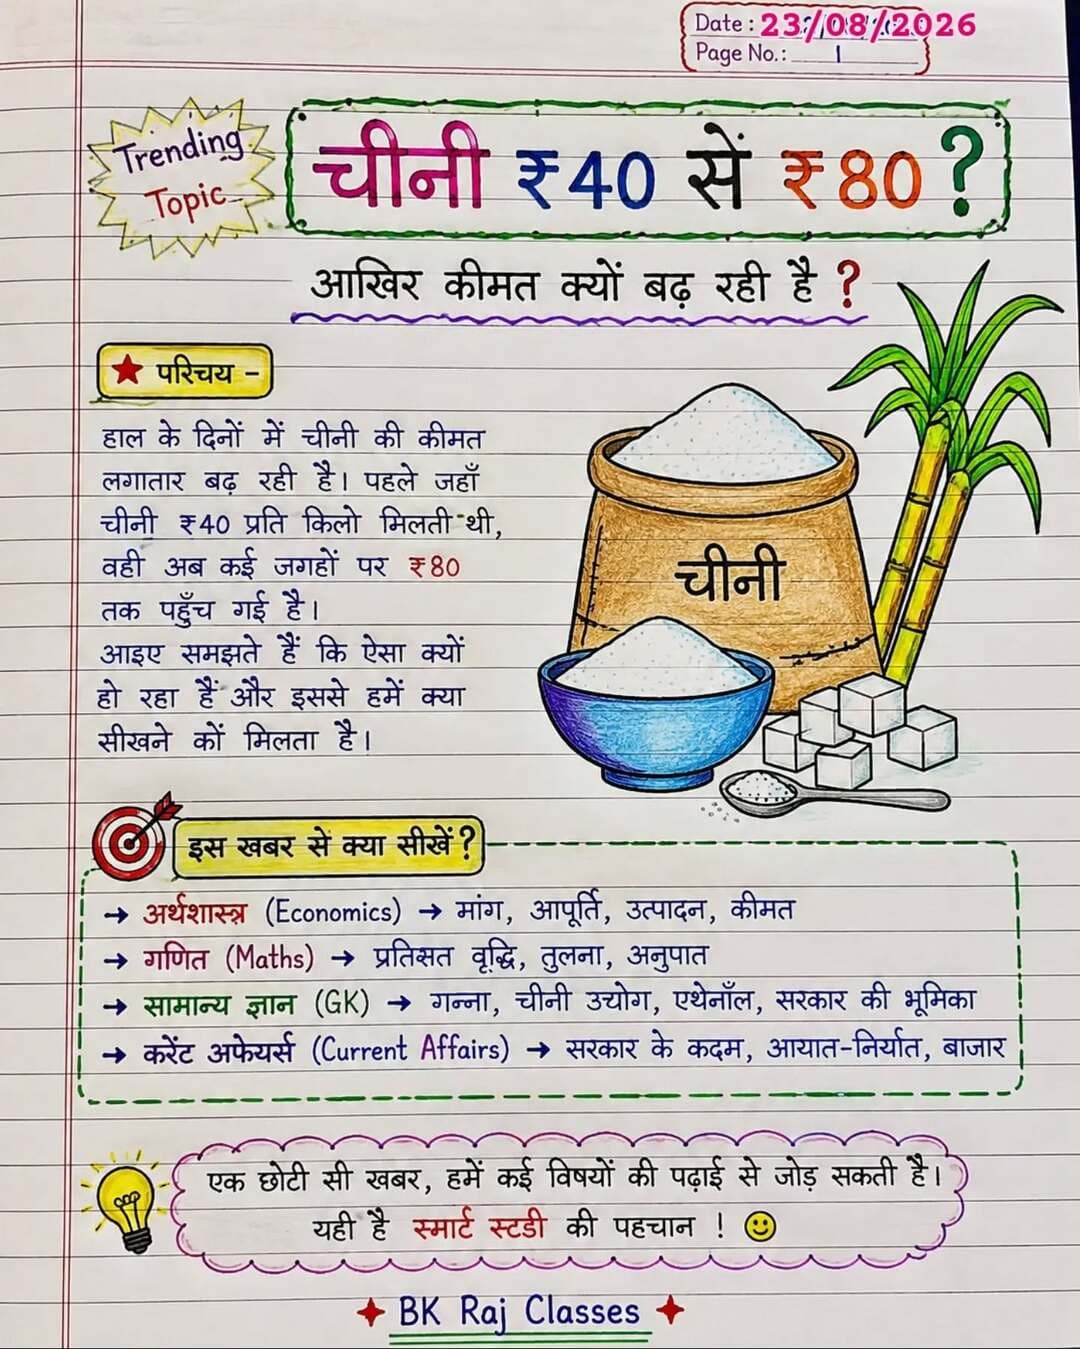 Date : 23/08/2026
Page No.: 1
Trending
Topic
चीनी ₹40 से ₹80 ?
आखिर कीमत क्यों बढ़ रही है ?
परिचय -
हाल के दिनों में चीनी की कीमत
लगातार बढ़ रही है। पहले जहाँ
चीनी ₹40 प्रति किलो मिलती थी,
वही अब कई जगहों पर ₹80
तक पहुँच गई है।
आइए समझते हैं कि ऐसा क्यों
हो रहा हैं और इससे हमें क्या
सीखने कों मिलता है।
चीनी
इस खबर से क्या सीखें ?
→ अर्थशास्त्र (Economics) → मांग, आपूर्ति, उत्पादन, कीमत
→ गणित (Maths) → प्रतिसत वृद्धि, तुलना, अनुपात
→ सामान्य ज्ञान (GK) → गन्ना, चीनी उद्योग, एथेनॉल, सरकार की भूमिका
→ करेंट अफेयर्स (Current Affairs) → सरकार के कदम, आयात-निर्यात, बाजार
एक छोटी सी खबर, हमें कई विषयों की पढ़ाई से जोड़ सकती है।
यही है स्मार्ट स्टडी की पहचान !
BK Raj Classes